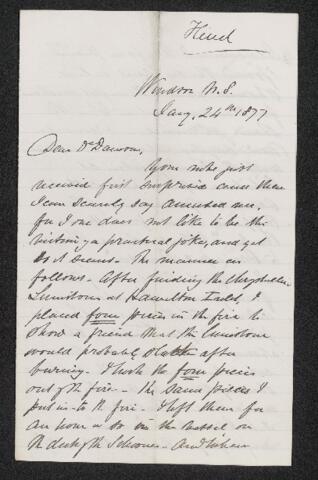 Hind
Windsor N.S.
Jany. 24th 1877
Dear Dr Dawson,
Your note just
received first surprised cause then
I can scarcely say amused me.
for I one does not like to be the
victim of a practical joke, and yet
so it seems. The manner as
follows. After finding the
Limestone at Hamilton Inlet, I
placed four pieces in the fire to
show a friend that the limestone
would probably slake after
burning. I took the four pieces
out of the fire - the same pieces I
put in to the fire. I left them for
an hour or so in the vessel on
the deck of the Schooner. And when